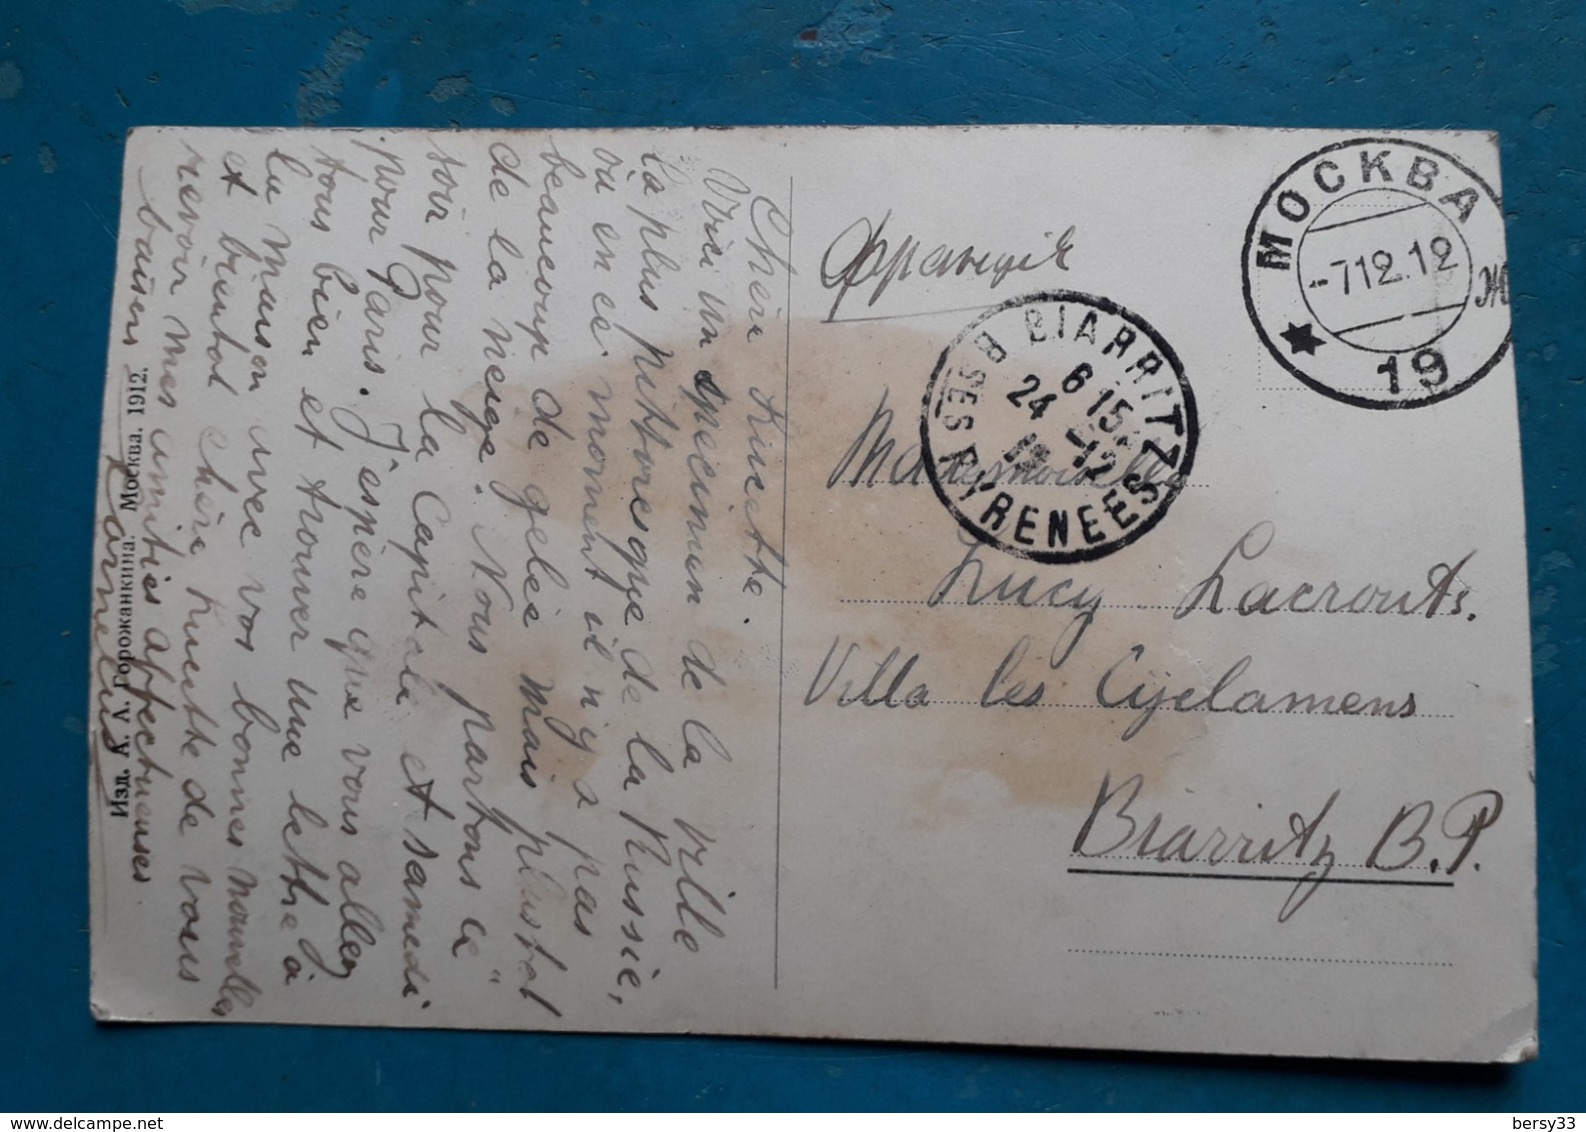 Chère Lucette.
Voici un specimen de la ville
la plus pittoresque de la Russie,
où en ce moment il n'y a pas
beaucoup de gelée mais plustot
de la neige. Nous partons ce
soir pour la Capitale et samedi
pour Paris. J'espère que vous allez
tous bien et trouver une lettre à
la maison avec vos bonnes nouvelles
et bientot chère Lucette de vous
revoir mes amitiés affectueuses
baisers
Cornelius
Изд. А. А. Горожанкина. Москва. 1912.
Франція
МОСКВА
-712.12
Ж
19
BIARRITZ
6 15
24 -12
BSES PYRENEES
Mademoiselle
Lucy Lacrouts.
Villa les Cyclamens
Biarritz B.P.
delcampe.net
bersy33